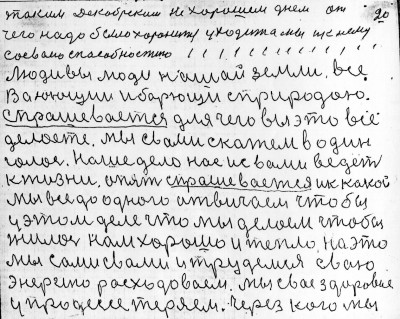 таким декобрским нехорошим днем от 20
чего надо было хоронит уходит мы
своею способностию ! ! ! ! ! ! ! ! ! !
Люди вы люди нашай земли. все
ваюющии и барющи с природаю.
Спрашевается для чего вы это все
делоете. мы с вами скажем в один
голос. Наше дело нас и с вами ведет
к жизни. опят спрашевается и к какой
мы все до одного атвичаем чтобы
у этом деле что мы делаем чтобы
жилос нам хорошо и тепло. на это
мы сами с вами и трудемся сваю
энергию росходоваем. мы свае здоровие
у процессе теряем. Через кого мы